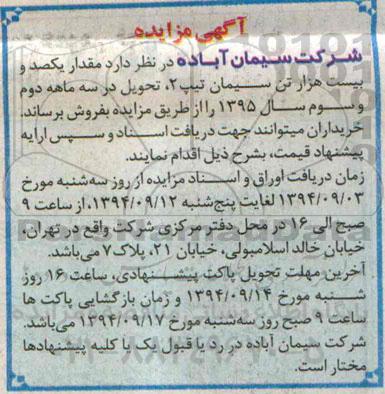 آگهی مزایده
شرکت سیمان آباده در نظر دارد مقدار یکصد و
بیست هزار تن سیمان تیپ ۲، تحویل در سه ماهه دوم
و سوم سال ۱۳۹۵ را از طریق مزایده بفروش برساند.
خریداران میتوانند جهت دریافت اسناد و سپس ارایه
پیشنهاد قیمت، بشرح ذیل اقدام نمایند.
زمان دریافت اوراق و اسناد مزایده از روز سه‌شنبه مورخ
۱۳۹۴/۰۹/۰۳ لغایت پنج‌شنبه ۱۳۹۴/۰۹/۱۲، از ساعت ۹
صبح الی ۱۶ در محل دفتر مرکزی شرکت واقع در تهران،
خیابان خالد اسلامبولی، خیابان ۲۱، پلاک ۷ می‌باشد.
آخرین مهلت تحویل پاکت پیشنهادی، ساعت ۱۶ روز
شنبه مورخ ۱۳۹۴/۰۹/۱۴ و زمان بازگشایی پاکت ها
ساعت ۹ صبح روز سه‌شنبه مورخ ۱۳۹۴/۰۹/۱۷ می‌باشد.
شرکت سیمان آباده در رد یا قبول یک یا کلیه پیشنهادها
مختار است.